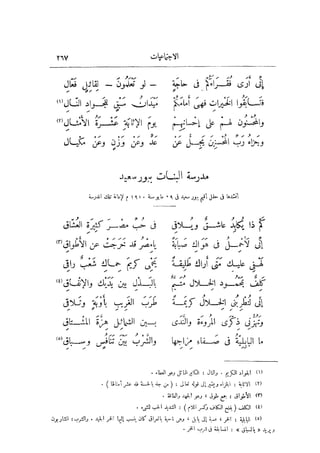 الاجتماعيات ٢٦٧
إنى أرى فقراءكم فى حاجة – لو تعلمون – لقائل فعال
فتسابقوا الخيرات فهى أمامكم ميدان سبق للجواد النال (١)
والمحسنون لهم على إحسانهم يوم الإثابة عشرة الأمثال (٢)
وجزاء رب المحسنين يجل عن عد وعن وزن وعن مكيال
مدرسة البنات ببورسعيد
أنشدها فى حفل أقيم ببور سعيد فى ٢٩ مايو سنة ١٩١٠ م لإعانة تلك المدرسة
كم ذا يكابد عاشق ويلاقى فى حب مصر كثيرة العشاق
إنى لأحمل فى هواك صبابة يامصر قد خرجت عن الأطواق (٣)
لهفى عليك متى أراك طليقة يحمى كريم حماك شعب راقى
كلف بمحمود الخلال متيم بالبذل بين يديك والإنفاق (٤)
إنى لتطربنى الخلال كريمة طرب الغريب بأوبة وتلاقى
وتهزنى ذكرى المروءة والندى بين الشمائل هزة المشتاق
ما البابلية فى صفاء مزاجها والشرب بين تنافس وسباق (٥)
(١) الجواد: الكريم. والنال: الكثير النائل وهو العطاء.
(٢) الإثابة: الجزاء ويشير إلى قوله تعالى: (من جاء بالحسنة فله عشر أمثالها).
(٣) الأطواق: جمع طوق، وهو الجهد والطاقة.
(٤) الكلف (بفتح الكاف وكسر اللام): الشديد الحب للشىء.
(٥) البابلية: الخمر، نسبة إلى بابل، وهى ناحية بالعراق كان ينسب إليها الخمر الجيد. والشرب: الشاربون
ويريد بالسباق: المسابقة فى شرب الخمر.